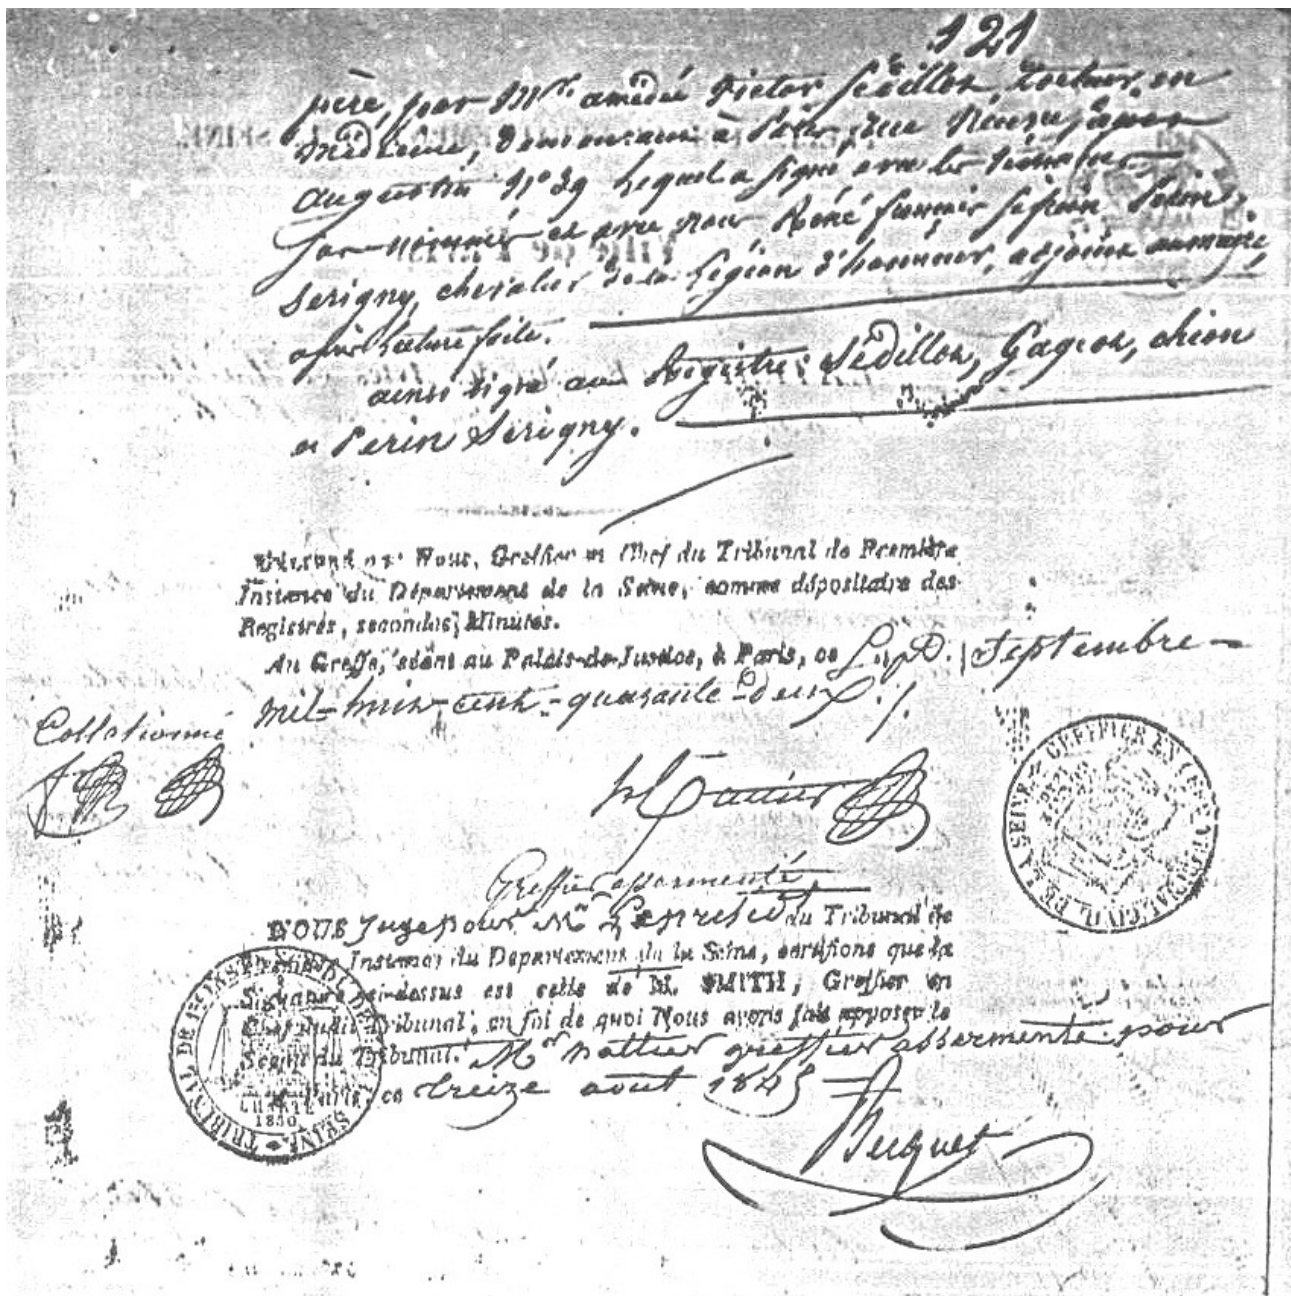 121
père, par Mr. amédée Victor Sédillot, Docteur en
Médecine, demeurant à Paris, rue Neuve
augustin No 39 lequel a signé avec les témoins
sus-nommés et avec nous René françois Perin
Serigny, chevalier de la Légion d'honneur, adjoint au maire,
après lecture faite.
ainsi signé au Registre: Sédillot, Gagion, chion
et Perin Serigny.
Nous, Greffier en Chef du Tribunal de Première
Instance du Département de la Seine, comme dépositaire des
Registres, secondes Minutes.
Au Greffe, séant au Palais-de-Justice, à Paris, ce Septembre
mil-huit-cent-quarante-deux
Collationné
Greffier assermenté
NOUS Juge pour Mr Le président du Tribunal de
Instance du Département de la Seine, certifions que la
Signature ci-dessus est celle de M. SMITH, Greffier en
Chef dudit Tribunal, en foi de quoi Nous avons fait apposer le
Sceau du Tribunal. Mr greffier assermenté pour
Paris, ce treize août 1845
Becquet
TRIBUNAL DE 1RE INST. SEINE
CHARTE
1830
TRIBUNAL CIVIL DE LA SEINE